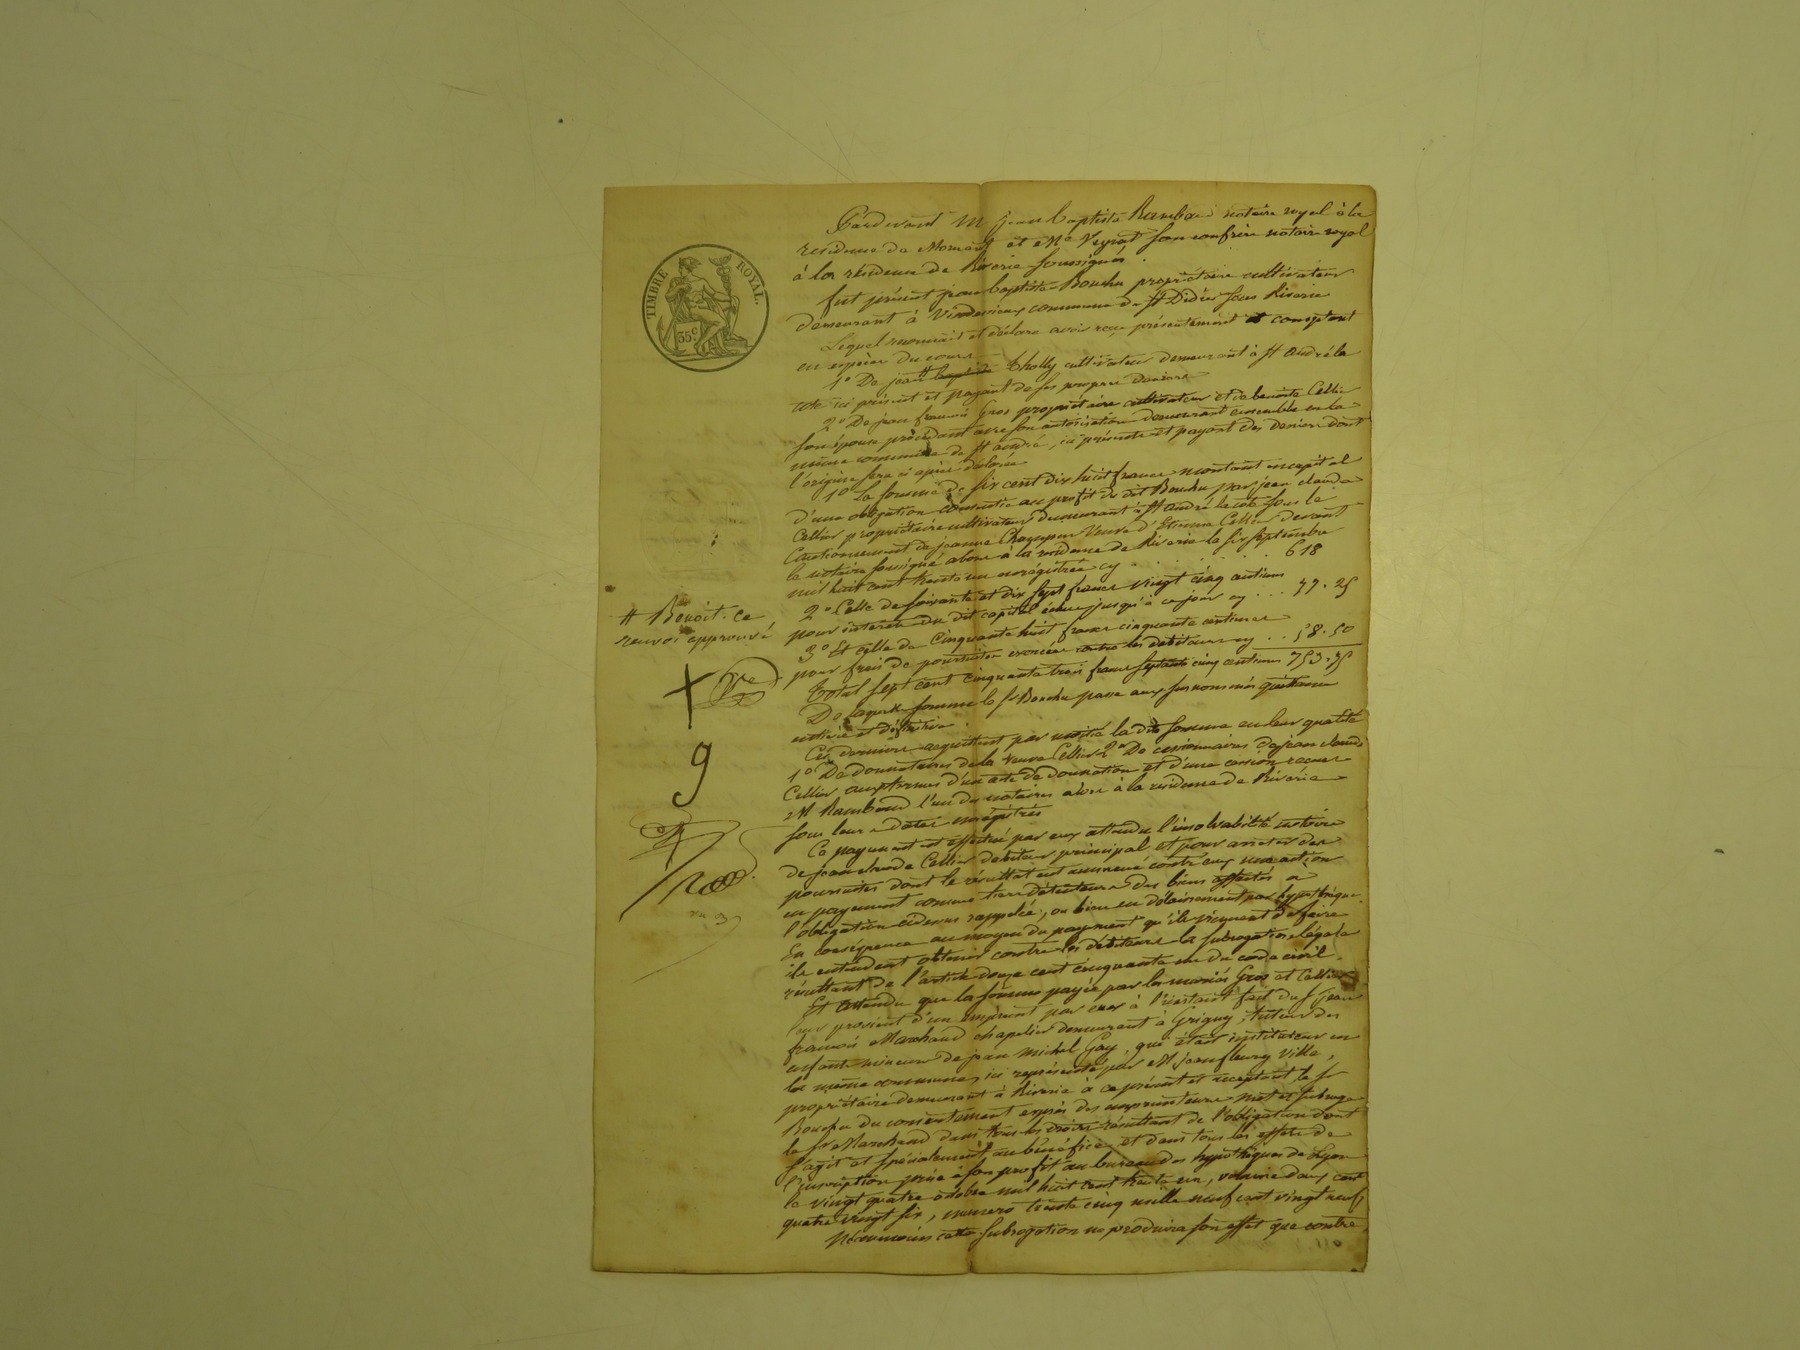 Pardevant Me jean baptiste Rambaud notaire royal à la
residence de Mornant et Me Veyrat son confrère notaire royal
à la résidence de Riverie soussignés.
fut présent jean baptiste Bouchu propriétaire cultivateur
demeurant à commune de St Didier sous Riverie
Lequel reconnait et déclare avoir reçu présentement et comptant
en espèces du cours
1° De jean # Tholly cultivateur demeurant à St andré la
cote ici présent et payant de ses propres deniers
2° De jean francois Gros propriétaire cultivateur et de benoite Cellier
son épouse procédant avec son autorisation demeurant ensemble en la
même commune de St andré, ici présents et payant des deniers dont
l'origine sera ci après déclarée
1° La somme de six cent dix huit francs montant en capital
d'une obligation consentie au profit du dit Bouchu par jean claude
Cellier propriétaire cultivateur demeurant à St andré la cote sous le
Cautionnement de jeanne veuve d'Etienne Cellier devant
le notaire soussigné alors à la residence de Riverie le six septembre
mil huit cent trente un enregistrée cy . . . . . . 618
2° Celle de soixante et dix sept francs vingt cinq centimes
pour intérêts du dit capital échus jusqu'à ce jour cy . . . 77. 25
3° Et celle de Cinquante huit francs cinquante centimes
pour frais de poursuites exercées contre les débiteurs cy . . 58. 50
Total sept cent cinquante trois francs septante cinq centimes 753. 75
De laquelle somme le Sr Bouchu passe aux susnommés quittance
entière et définitive.
Ces derniers acquittent par moitié la dite somme en leur qualité
1° De donnataires de la veuve Cellier 2° De cessionnaires de jean claude
Cellier aux termes d'un acte de donnation et d'une cession recues
Me Rambaud l'un des notaires alors à la residence de Riverie
sous leurs dates enregistrés
Ce payement est effectué par eux attendu l'insolvabilité notoire
de jean claude Cellier debiteur principal et pour arreter des
poursuites dont le résultat eut amené contre eux une action
en payement comme tiers détenteurs des biens affectés à
l'obligation cidevant rappelée, ou bien en délaissement par hypothèque.
En conséquence au moyen du payement qu'ils viennent de faire
ils entendent obtenir contre les débiteurs la subrogation légale
résultant de l'article douze cent cinquante un du code civil.
Et attendu que la somme payée par les mariés Gros et Cellier
provient d'un emprunt par eux à l'instant fait du Sr jean
francois Marchand chapelier demeurant à Grigny, tuteur des
enfants mineurs de jean michel Gay, qui était instituteur en
la même commune, ici représenté par Me jean fleury Ville,
propriétaire demeurant à Riverie à ce présent et acceptant le Sr
Bouchu du consentement exprès des emprunteurs met et subroge
le Sr Marchand dans tous les droits résultant de l'obligation dont
s'agit et spécialement au bénéfice et dans tous les effets de
l'inscription prise à son profit au bureau des hypothèques de Lyon
le vingt quatre octobre mil huit cent trente un, volume deux cent
quatre vingt six, numero trente cinq mille neuf cent vingt neuf,
Néanmoins cette subrogation ne produira son effet que contre
TIMBRE ROYAL.
35c
# Benoit. ce
renvoi approuvé
g